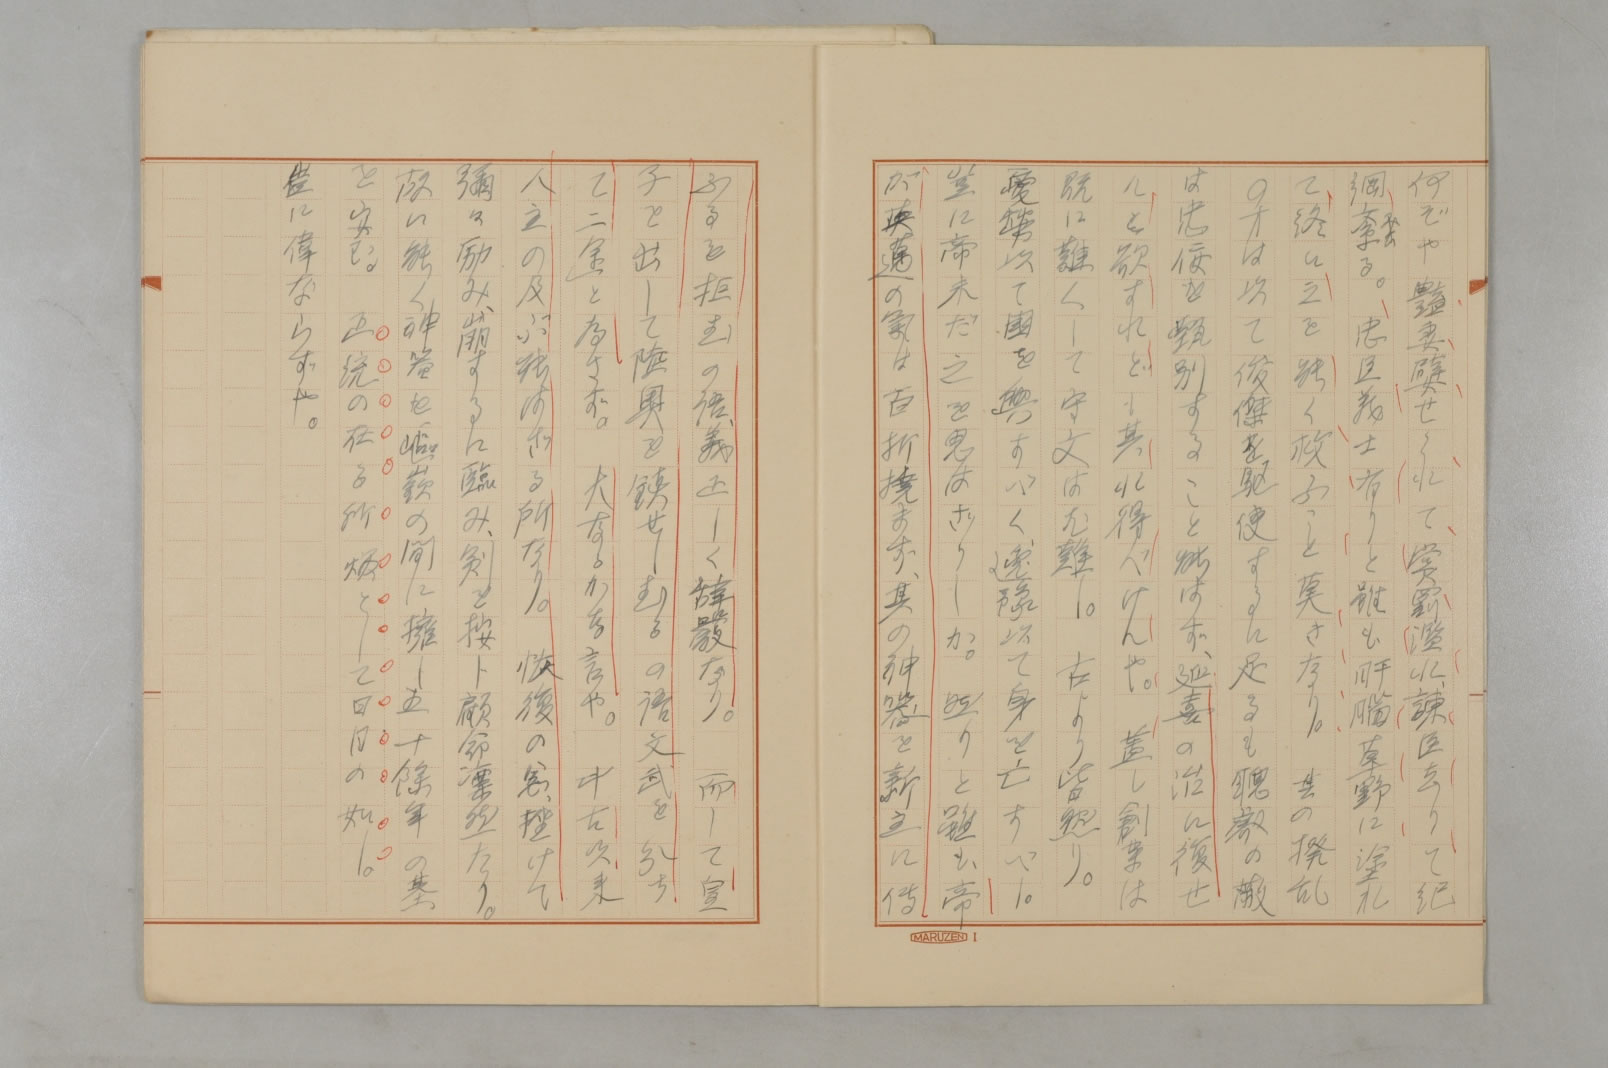 何ぞや艶妻嬖せられて賞罰濫れ、諫臣去りて紀
綱紊る。忠臣義士有りと雖も肝脳草野に塗れ
て終に之を能く救ふこと莫きなり。其の撥乱
の才は以て俊傑を駆使するに足るも聰敏の蔽
は忠佞を甄別すること能はず、延喜の治に復せ
んと欲すれども其れ得べけんや。蓋し創業は
既に難くして守文は尤難し。古より皆然り。
憂勤以て国を興すべく逸豫以て身を亡すべし。
豈に帝未だ之を思はざりしか。然りと雖も帝
が英邁の気は百折撓まず、其の神器を新主に傳
ふるを拒むの語、義正しく辞厳なり。而して皇
子を出して陸奥を鎮せしむるの語文武を分ち
て二途と為さず。大なるかな言や。中古以来
人主の及ぶ能はざる所なり。恢復の念、挫けて
彌々励み、崩ずるに臨み、剣を按じ顧命凛然たり。
故に能く神器を嶇嶔の間に擁し五十餘年の基
を安む。正統の在る所煥として日月の如し。
豈に偉ならずや。
MARUZEN I